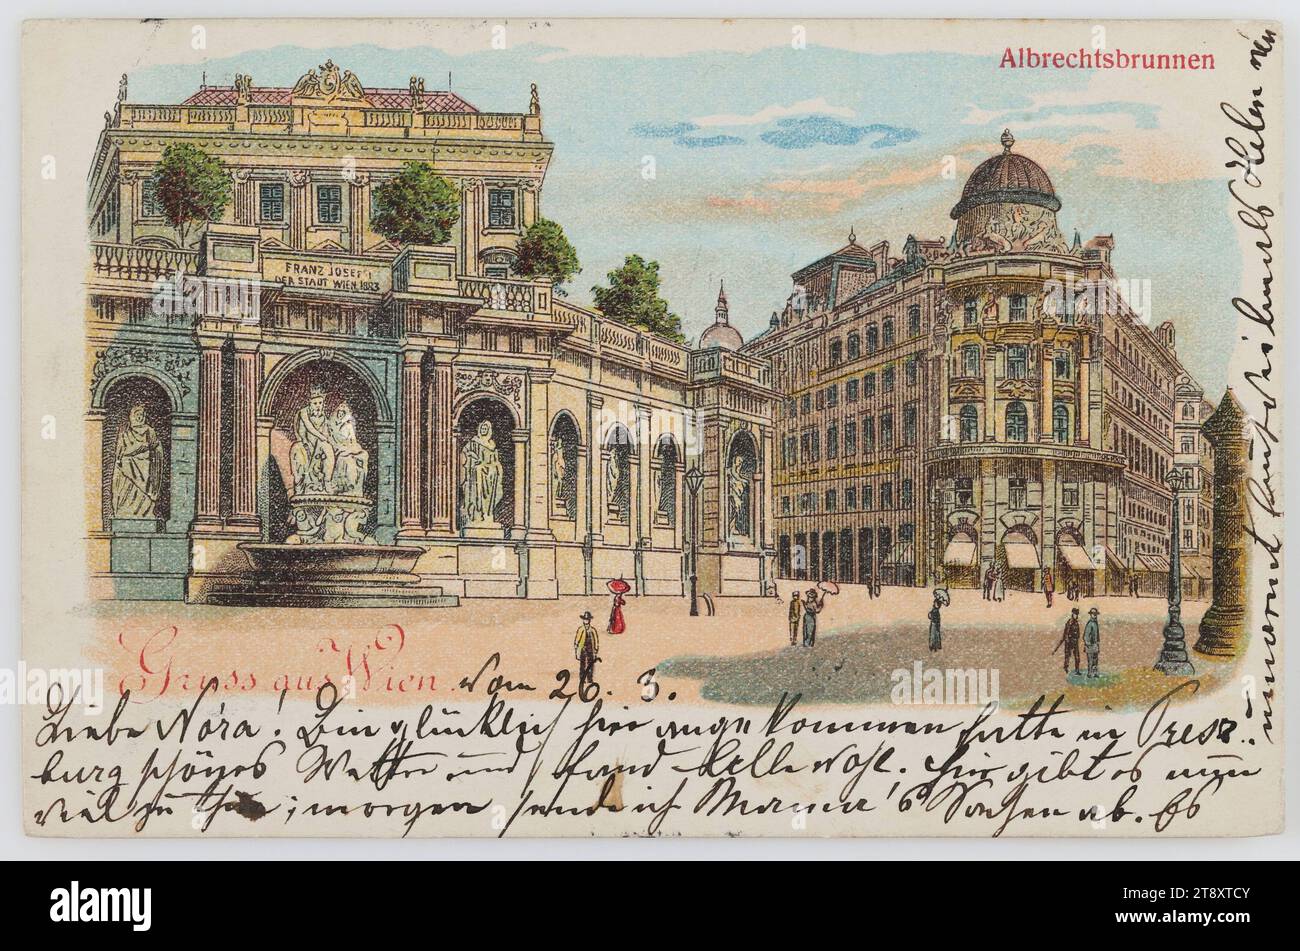 Albrechtsbrunnen
FRANZ JOSEF I
DER STADT WIEN 1883
Gruss aus Wien
Vom 26. 3.
Liebe Nóra! Bin glücklich hier angekommen hatte in Press-
burg schönes Wetter und fand alle wohl. Hier gibt es nun
viel zu thun; morgen sende ich Mama's Sachen ab. Es
umarmt
alamy
Image ID: 2T8XTCY
www.alamy.com